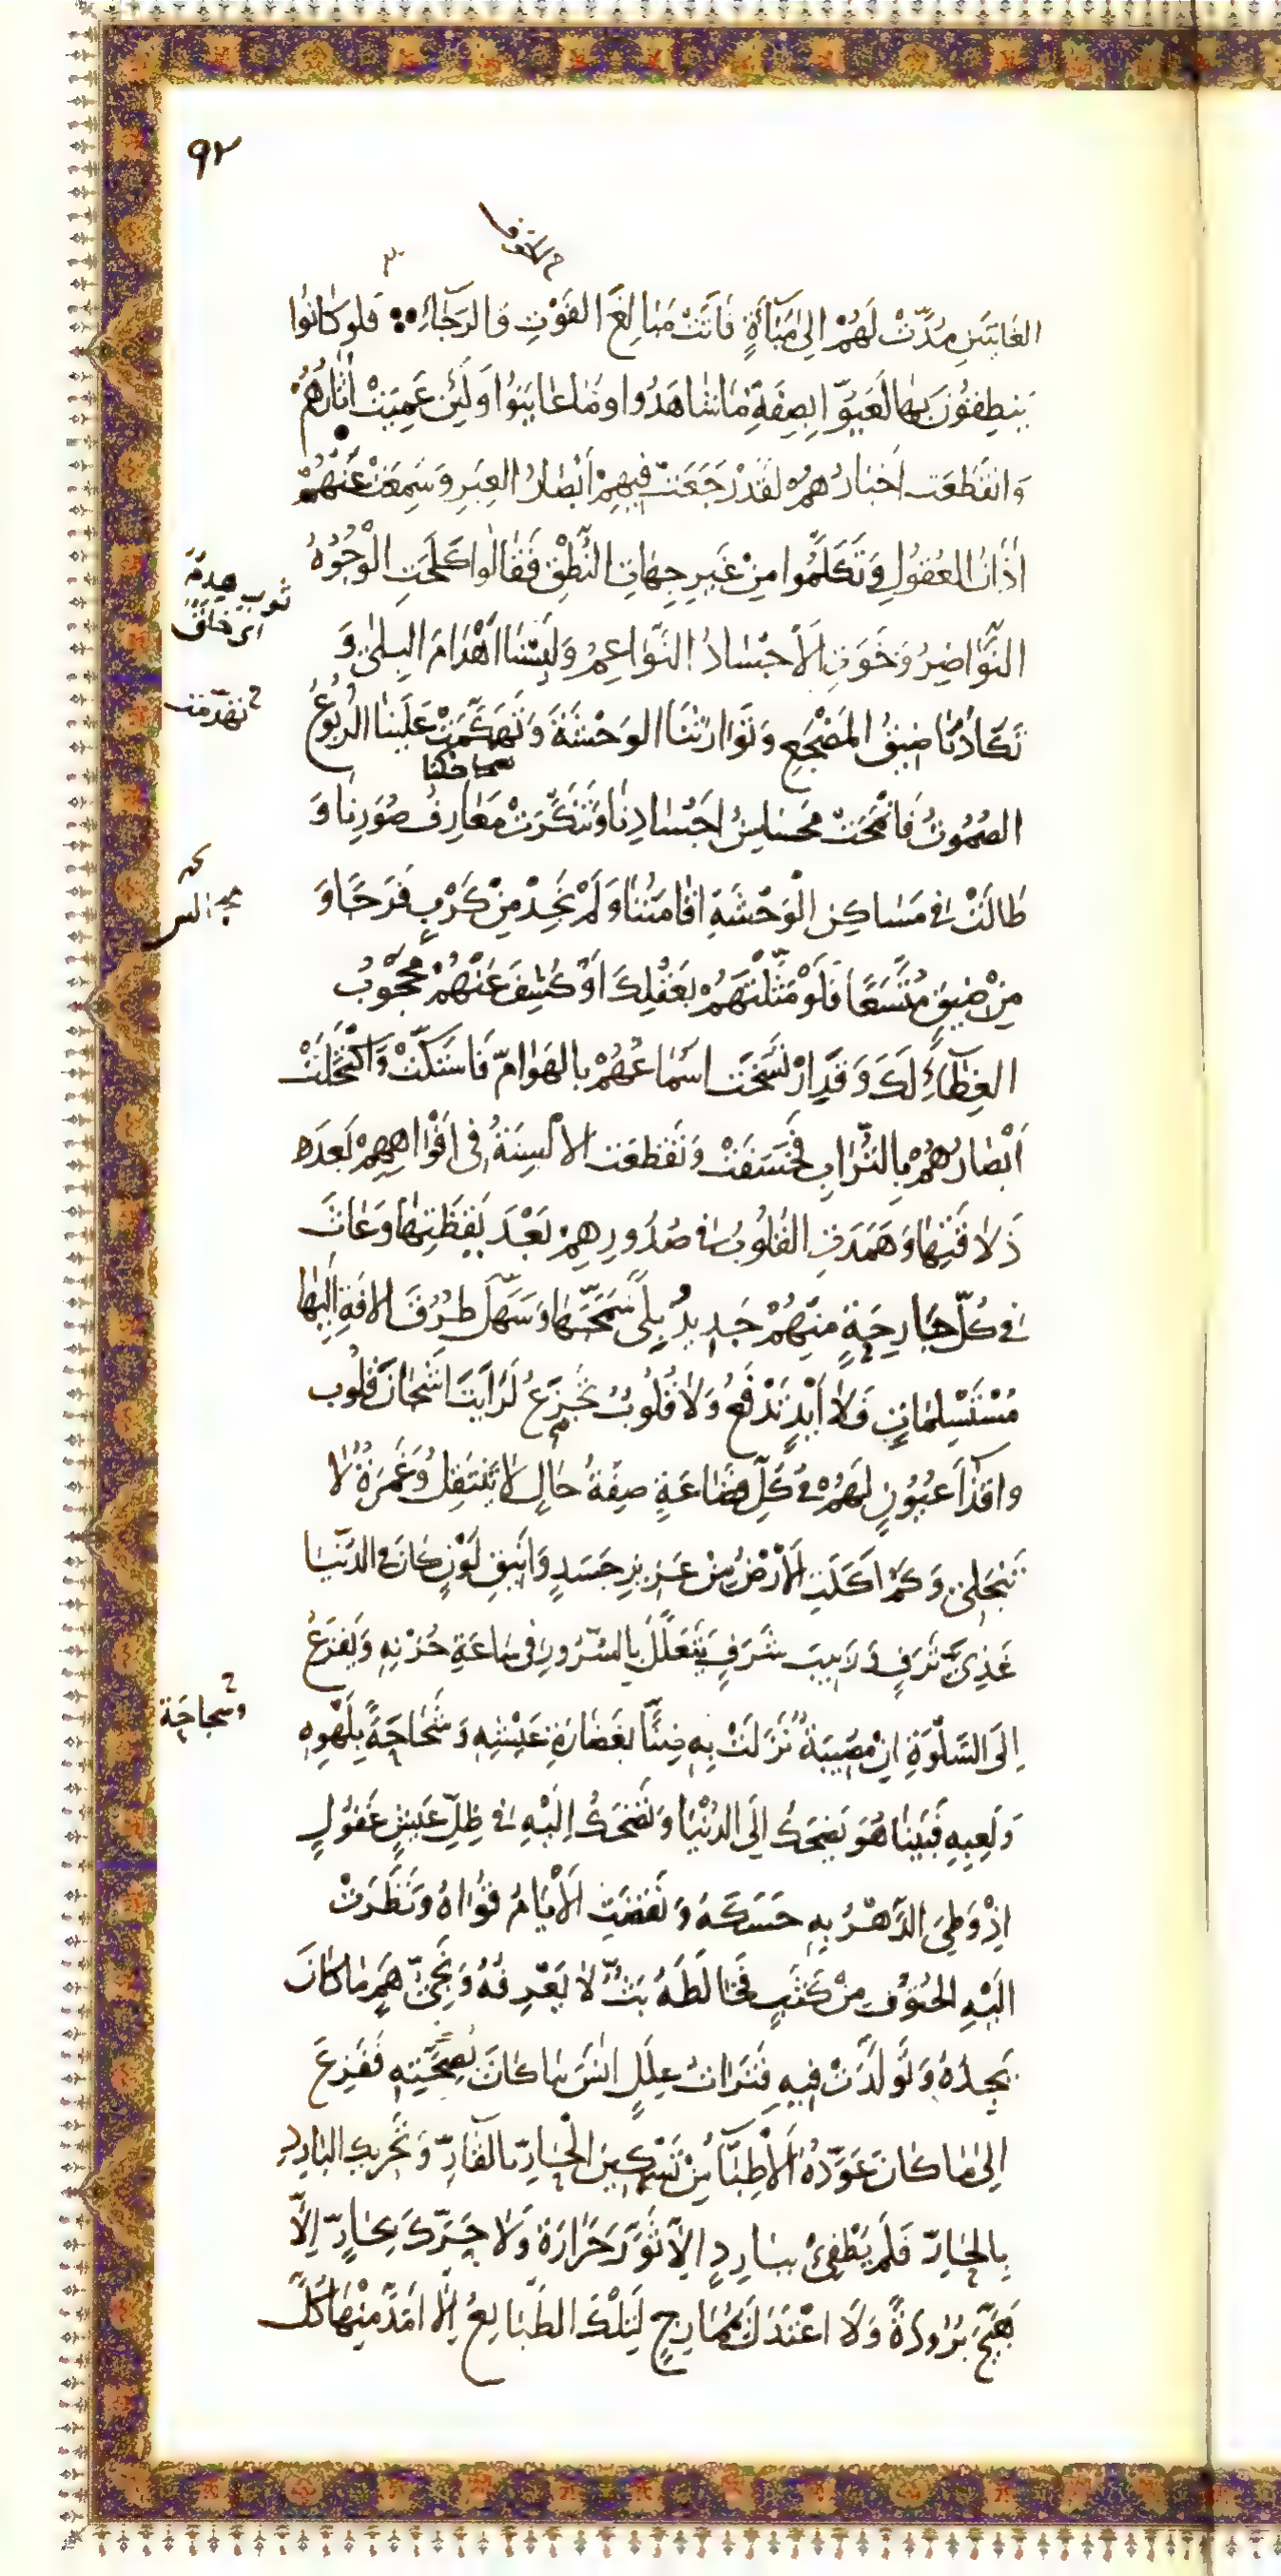 ٩٢
الغايتين مُدَّتْ لَهُمْ اِلىٰ مَبٰاءَةٍ فَاتَتْ مَبٰالِغَ الفَوْتِ وَالرَجٰاءِ فلو كٰانُوا
يَنطِقُونَ بِهٰا لَعَيُّوا بِصِفَةِ مٰا شٰاهَدُوا وَمٰا عٰايَنُوا وَلَئِن عَمِيَتْ اٰثٰارُهُمْ
وَانقَطَعَت اَخبٰارُهُمْ لَقَدْ رَجَعَتْ فِيهِمْ اَبْصٰارُ العِبَرِ وَسَمِعَتْ عَنْهُمْ
اٰذٰانُ العُقُولِ وَتَكَلَّمُوا مِنْ غَيرِ جِهٰاتِ النُّطْقِ فَقٰالُوا كَلَحَتِ الْوُجُوهُ
النَّوٰاضِرُ وَخَوَتِ الاَجْسٰادُ النَّوٰاعِمُ وَلَبِسْنٰا اَهْدٰامَ البِلىٰ وَ
تَكٰادَنٰا ضِيقُ المَضْجَعِ وَتَوٰارَثْنَا الوَحْشَةَ وَتَهَكَّمَتْ عَلَيْنٰا الرُبُوعُ
الصُمُوتُ فَانْمَحَتْ مَحٰاسِنُ اَجْسٰادِنٰا وَتَنَكَّرَتْ مَعٰارِفُ صُوَرِنٰا وَ
طٰالَتْ فى مَسٰاكِنِ الْوَحْشَةِ اِقٰامَتُنٰا وَلَمْ نَجِدْ مِنْ كَرْبٍ فَرَجًا وَ
مِنْ ضِيقٍ مُتَّسَعًا فَلَوْ مَثَّلْتَهُمْ بِعَقْلِكَ اَوْ كُشِفَ عَنْهُمْ مَحْجُوبُ
الغِطٰاءِ لَكَ وَقَدِ ارْتَسَخَت اَسْمٰاعُهُمْ بِالهَوٰامِّ فَاسْتَكَّتْ وَاكْتَحَلَتْ
اَبْصٰارُهُمْ بِالتُّرٰابِ فَخَسَفَتْ وَتَقَطَّعَت الاَلْسِنَةُ فى اَفْوٰاهِهِمْ بَعدَ
ذَلاٰقَتِهٰا وَهَمَدَتِ القُلُوبُ فى صُدُورِهِمْ بَعْدَ يَقِظَتِهٰا وَعٰاثَ
فى كُلِّ جٰارِحَةٍ مِنْهُمْ جَدِيدُ بِلىً سَمَّجَهٰا وَسَهَّلَ طُرُقَ الاٰفَةِ اِلَيْهٰا
مُسْتَسْلِمٰاتٍ فَلاٰ اَيْدٍ تَدْفَعُ وَلاٰ قُلُوبٌ تَجْزَعُ لَرَاَيتَ اَشْجٰانَ قُلُوب
واَقذٰاءَ عُيُونٍ لَهُمْ فى كُلِّ فَظٰاعَةٍ صِفَةُ حٰالٍ لاٰ تَنتَقِلُ وَغَمْرَةٌ لاٰ
تَنْجَلِى وَكَمْ اَكَلَتِ الاَرْضُ مِنْ عَزِيزِ جَسَدٍ وَاَنِيقِ لَوْنٍ كٰانَ فى الدُنْيٰا
غَذِىَّ تَرَفٍ وَرَبِيبَ شَرَفٍ يَتَعَلَّلُ بِالسُّرُورِ فى سٰاعَةِ حُزْنِهِ وَيَفزَعُ
اِلَى السَّلْوَةِ اِنْ مُصِيبَةٌ نَزَلَتْ بِهِ ضِنًّا بِغَضٰارَةِ عَيْشِهِ وَشَحٰاحَةً بِلَهْوِهِ
وَلَعِبِهِ فَبَينٰا هُوَ يَضحَكُ اِلَى الدُنْيٰا وَتَضْحَكُ اِلَيْهِ فى ظِلِّ عَيشٍ غَفُولٍ
اِذْ وَطِئَ الدَّهْرُ بِهِ حَسَكَهُ وَنَقَضَتِ الاَيّٰامُ قُوٰاهُ وَنَظَرَتْ
اِلَيْهِ الحُتُوفُ مِنْ كَثَبٍ فَخٰالَطَهُ بَثٌّ لاٰ يَعْرِفُهُ وَنَجِىُّ هَمٍّ مٰا كٰانَ
يَجِدُهُ وَتَوَلَّدَتْ فِيهِ فَتَرٰاتُ عِلَلٍ اٰنَسَ مٰا كٰانَ بِصِحَّتِهِ فَفَزِعَ
اِلىٰ مٰا كٰانَ عَوَّدَهُ الاَطِبّٰاءُ مِنْ تَسْكِينِ الْحٰارِّ بِالقٰارِّ وَتَحْرِيكِ البٰارِدِ
بِالحٰارِّ فَلَمْ يُطْفِئْ بِبٰارِدٍ اِلاّٰ ثَوَّرَ حَرٰارَةً وَلاٰ حَرَّكَ بِحٰارٍّ اِلاّٰ
هَيَّجَ بُرُودَةً وَلاَ اعْتَدَلَ بِمُمٰازِجٍ لِتِلْكَ الطَبٰايِعِ اِلاّٰ اَمَدَّ مِنْهٰا كُلَّ
ثوب هِدمٌ
اى خَلَقٌ
تهدّمت
وسجاحَة